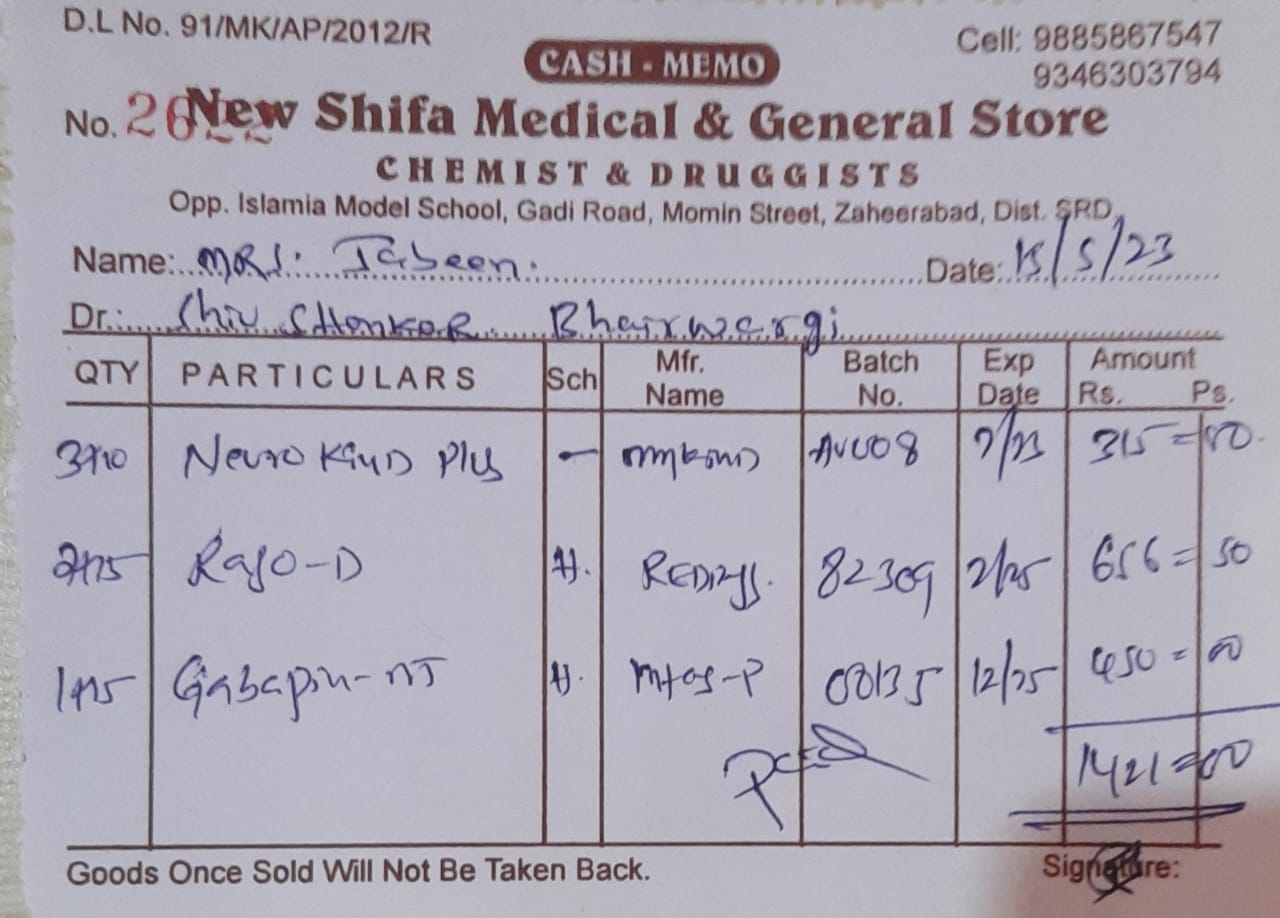 D.L No. 91/MK/AP/2012/R
CASH - MEMO
Cell: 9885867547
9346303794
No. 2622
New Shifa Medical & General Store
CHEMIST & DRUGGISTS
Opp. Islamia Model School, Gadi Road, Momin Street, Zaheerabad, Dist. SRD,
Name: MRS. Jabeen. Date: 15/5/23
Dr.: Shiv SHANKAR Bhairwargi
QTY PARTICULARS Sch Mfr. Name Batch No. Exp Date Amount Rs. Ps.
3*10 Neuro Kind Plus - AVC08 315=00
2*15 Raso-D H. REDDYS. 82309 2/25 656=50
1*15 Gabapin-NT H. 12/25 450=00
Paid 1421=00
Goods Once Sold Will Not Be Taken Back. Signature: